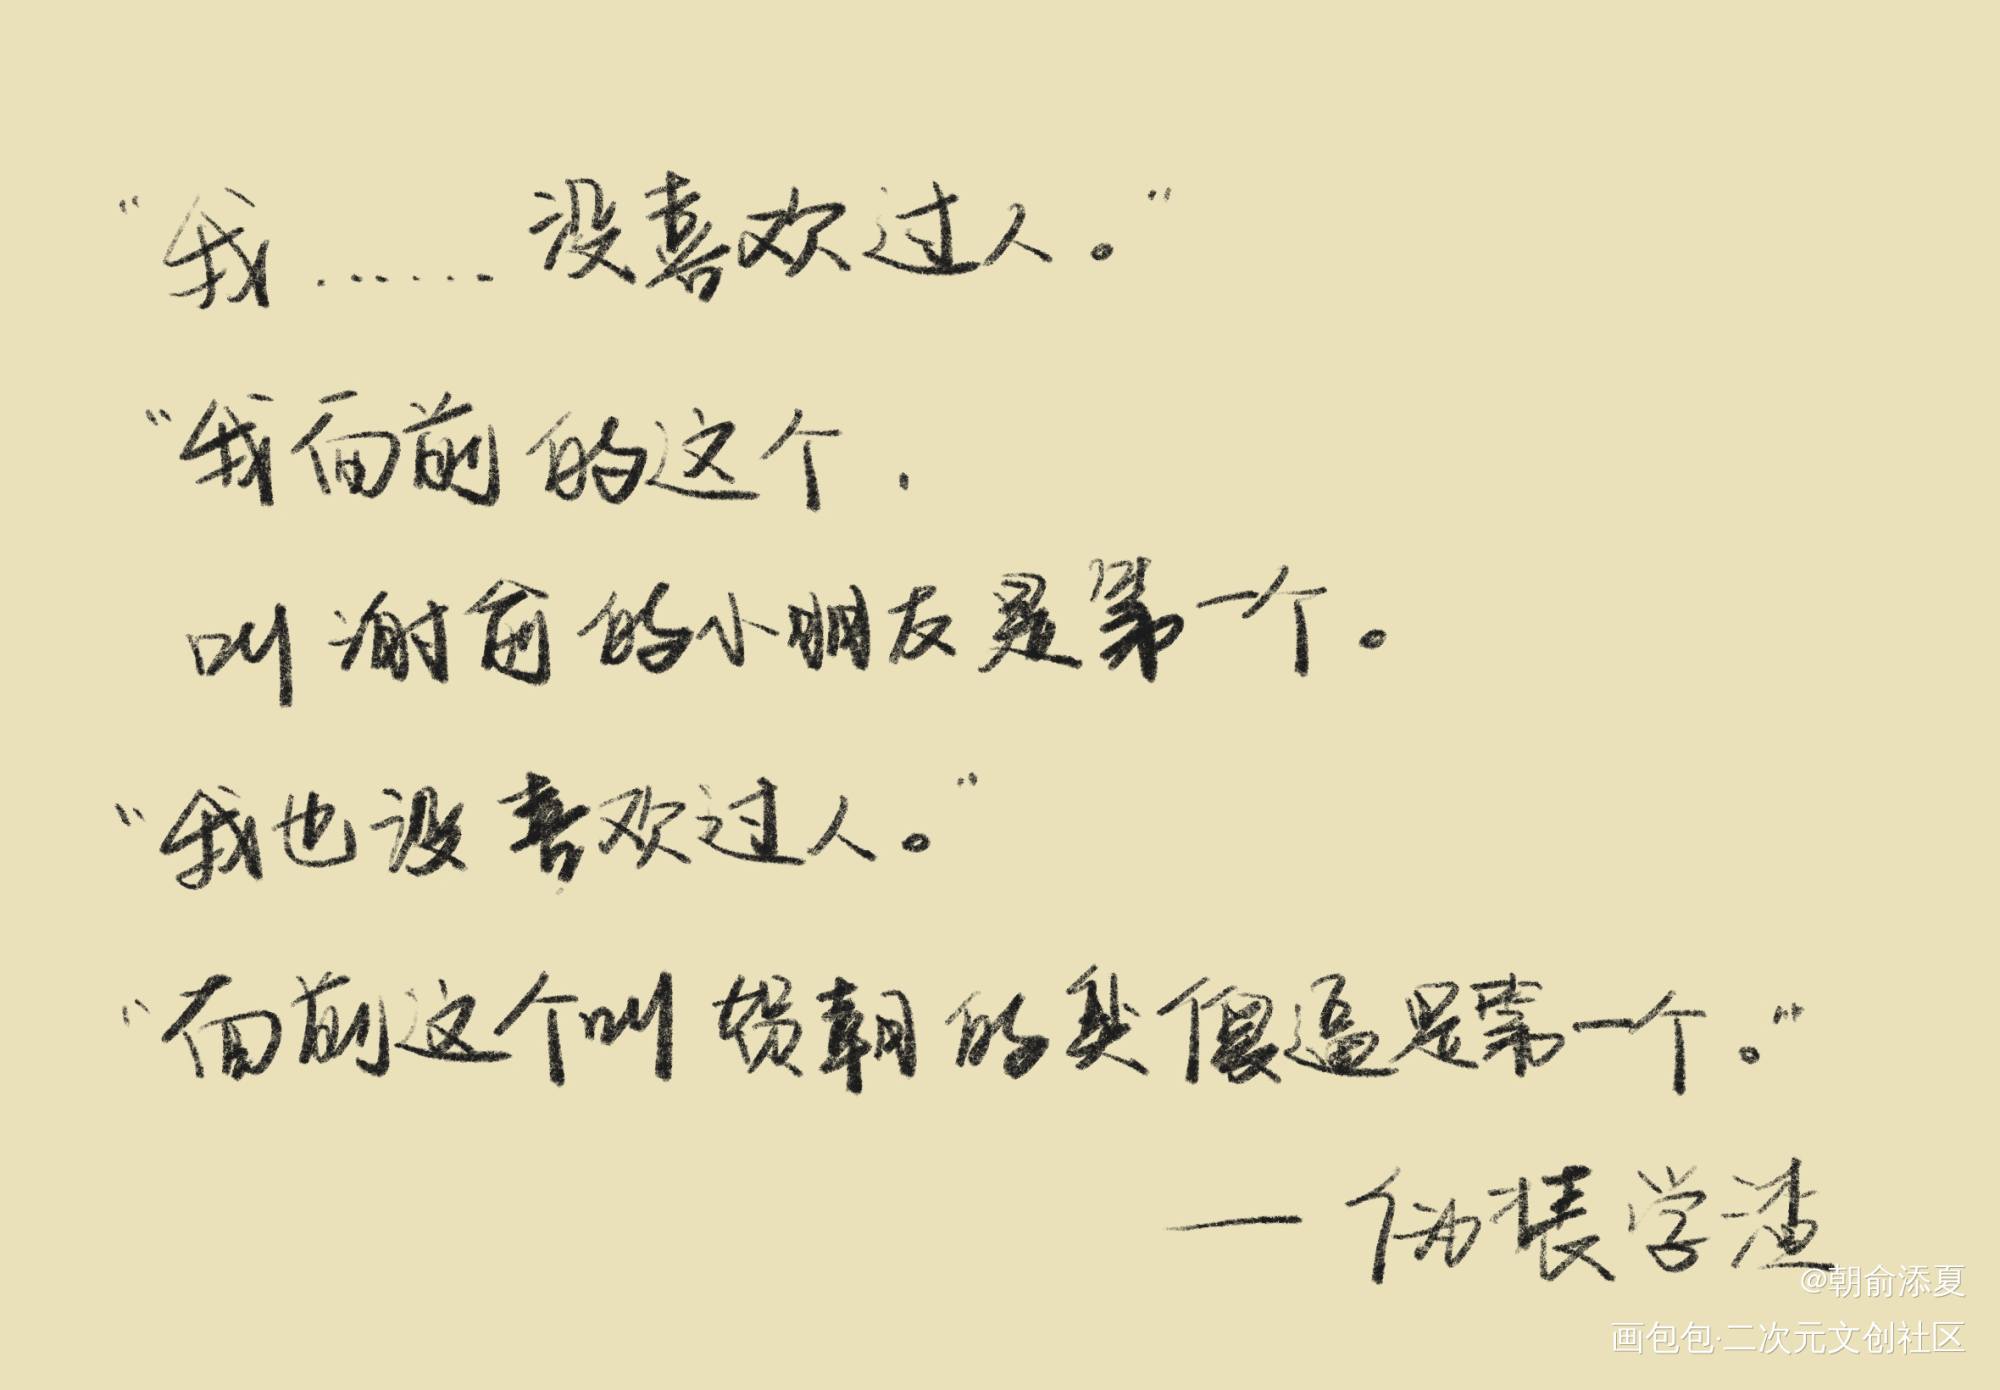 “我……没喜欢过人。”
“我面前的这个，
叫谢俞的小朋友是第一个。
“我也没喜欢过人。”
“面前这个叫贺朝的傻逼是第一个。”
—伪装学渣
@朝俞添夏
画包包·二次元文创社区